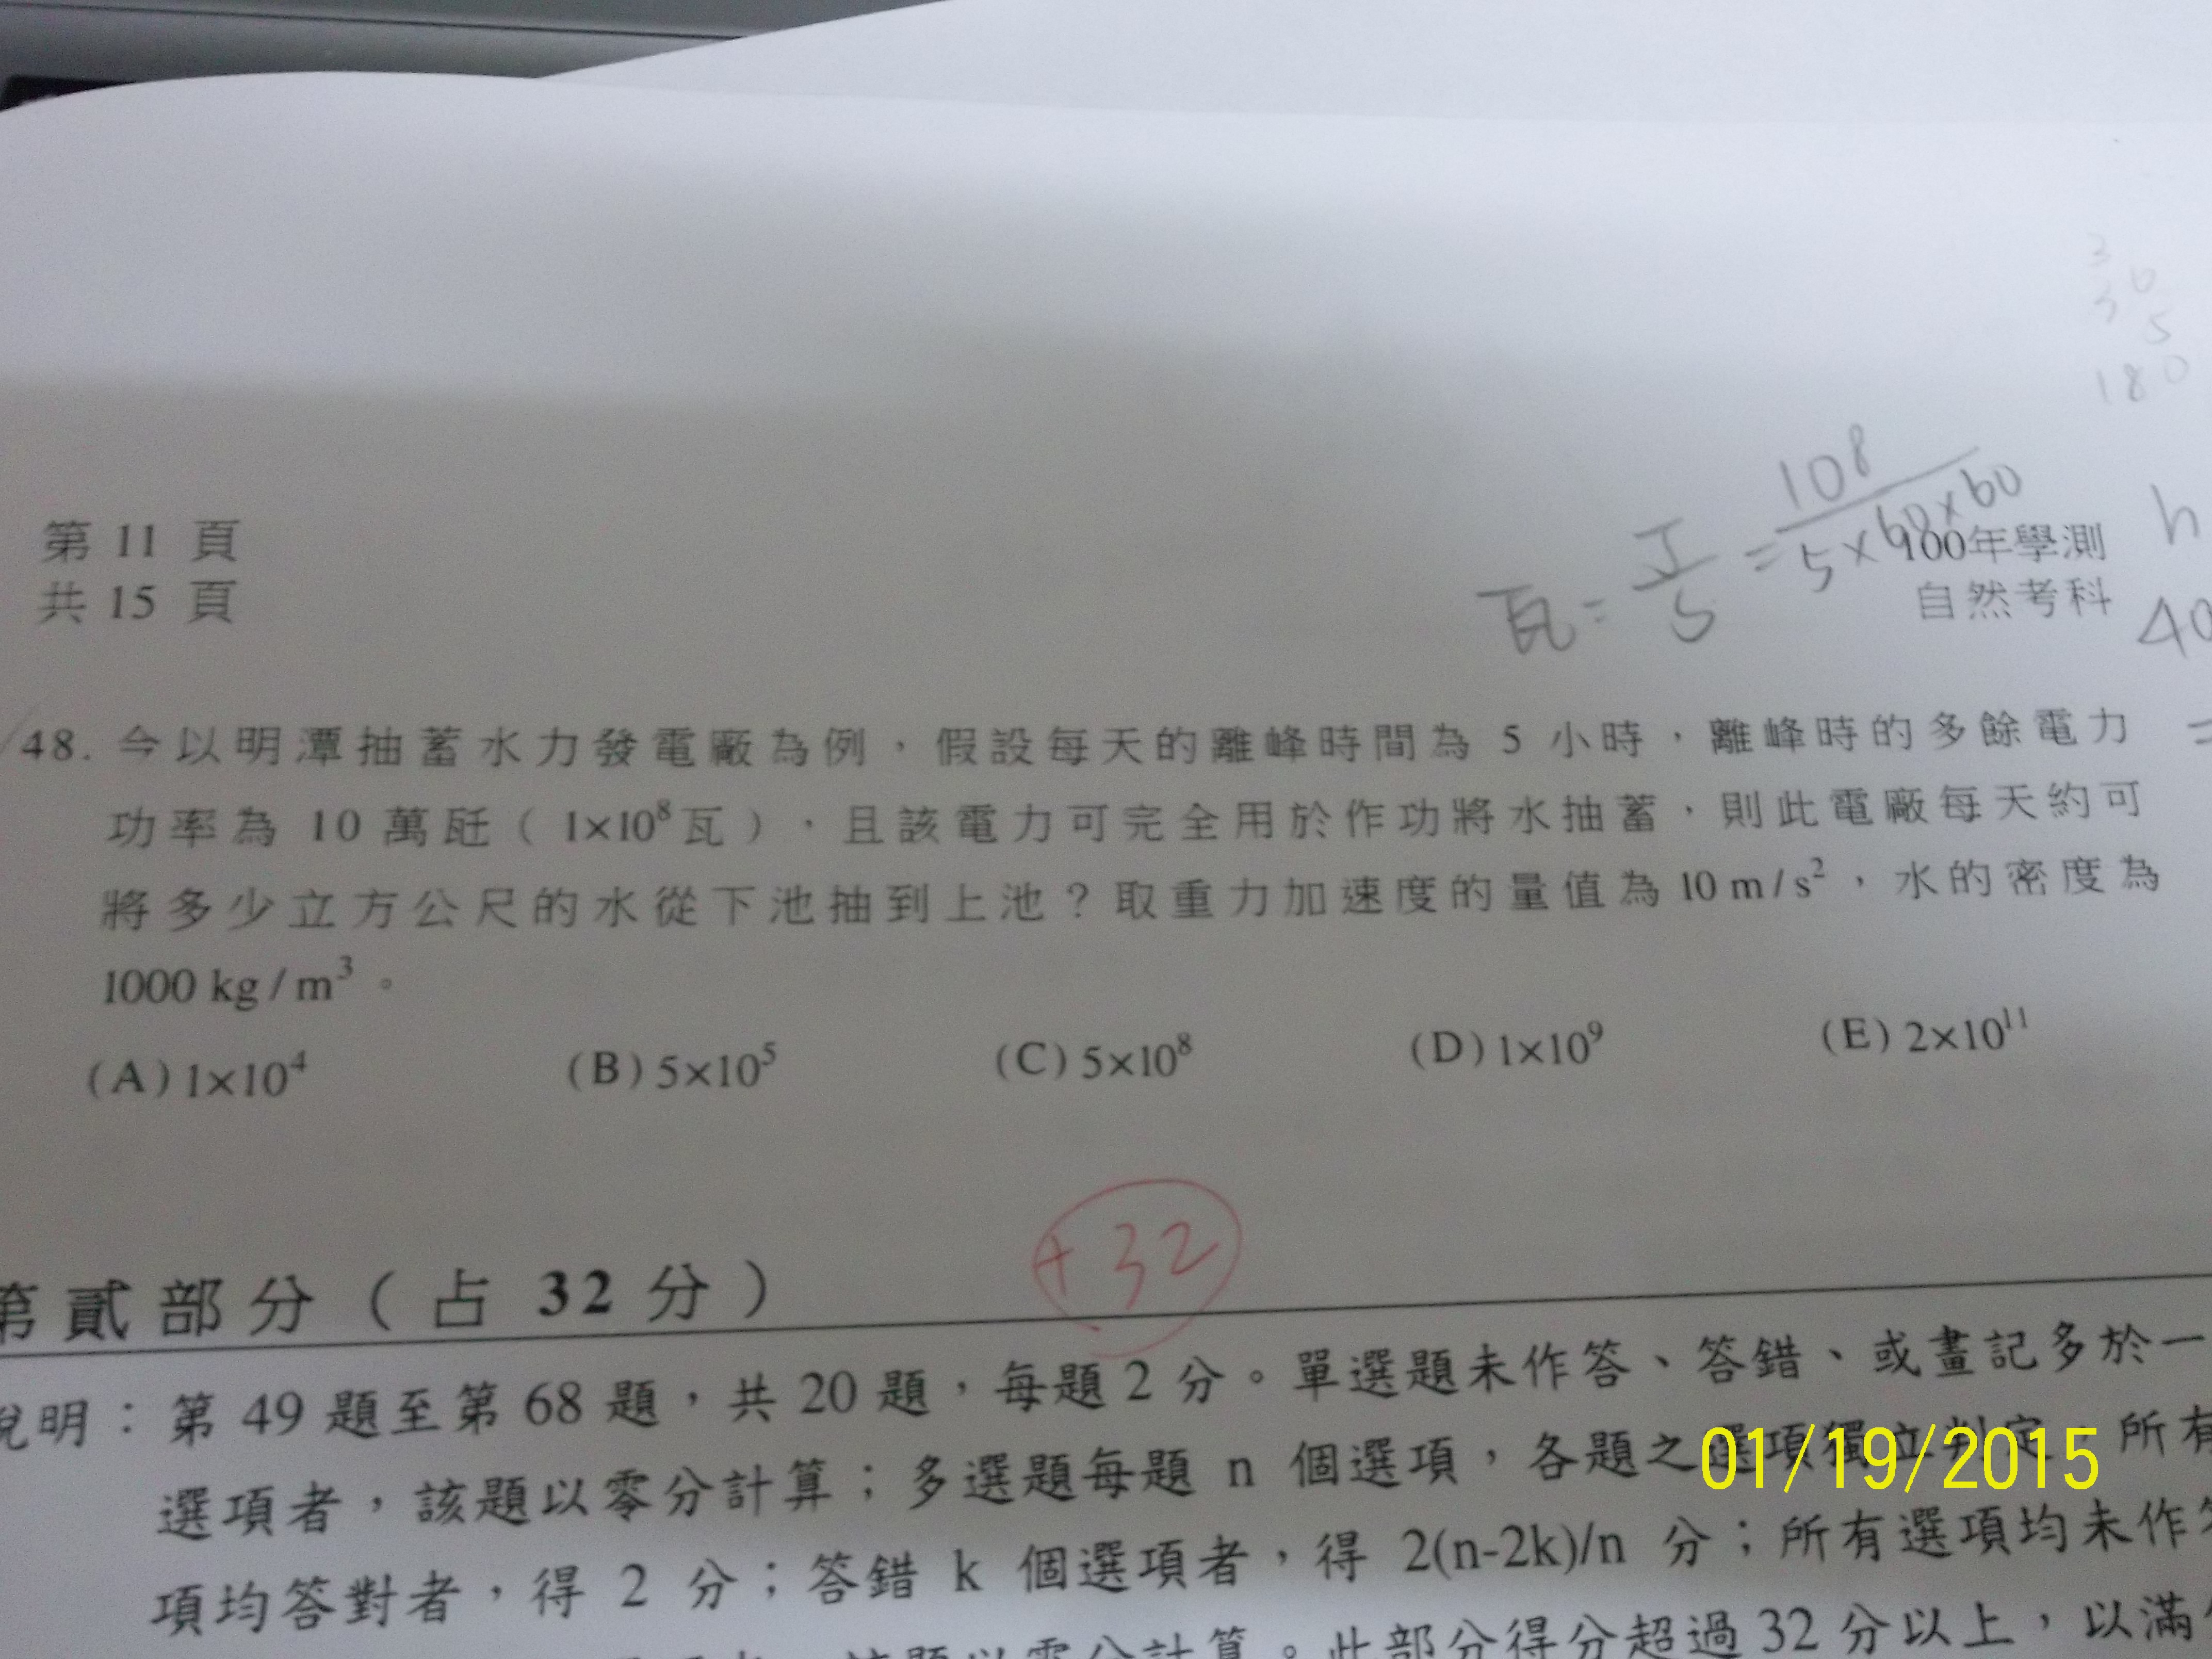 3
6
3
5
180
瓦 = J/S = 10⁸/5×60×60
h
40
=
第 11 頁
共 15 頁
100年學測
自然考科
48. 今以明潭抽蓄水力發電廠為例，假設每天的離峰時間為 5 小時，離峰時的多餘電力
功率為 10 萬瓩（1×10⁸瓦），且該電力可完全用於作功將水抽蓄，則此電廠每天約可
將多少立方公尺的水從下池抽到上池？取重力加速度的量值為 10 m/s²，水的密度為
1000 kg/m³。
(A) 1×10⁴ (B) 5×10⁵ (C) 5×10⁸ (D) 1×10⁹ (E) 2×10¹¹
+32
第貳部分（占 32 分）
說明：第 49 題至第 68 題，共 20 題，每題 2 分。單選題未作答、答錯、或畫記多於一
選項者，該題以零分計算；多選題每題 n 個選項，各題之選項獨立判定，所有
項均答對者，得 2 分；答錯 k 個選項者，得 2(n-2k)/n 分；所有選項均未作答
該題以零分計算。此部分得分超過 32 分以上，以滿分
01/19/2015